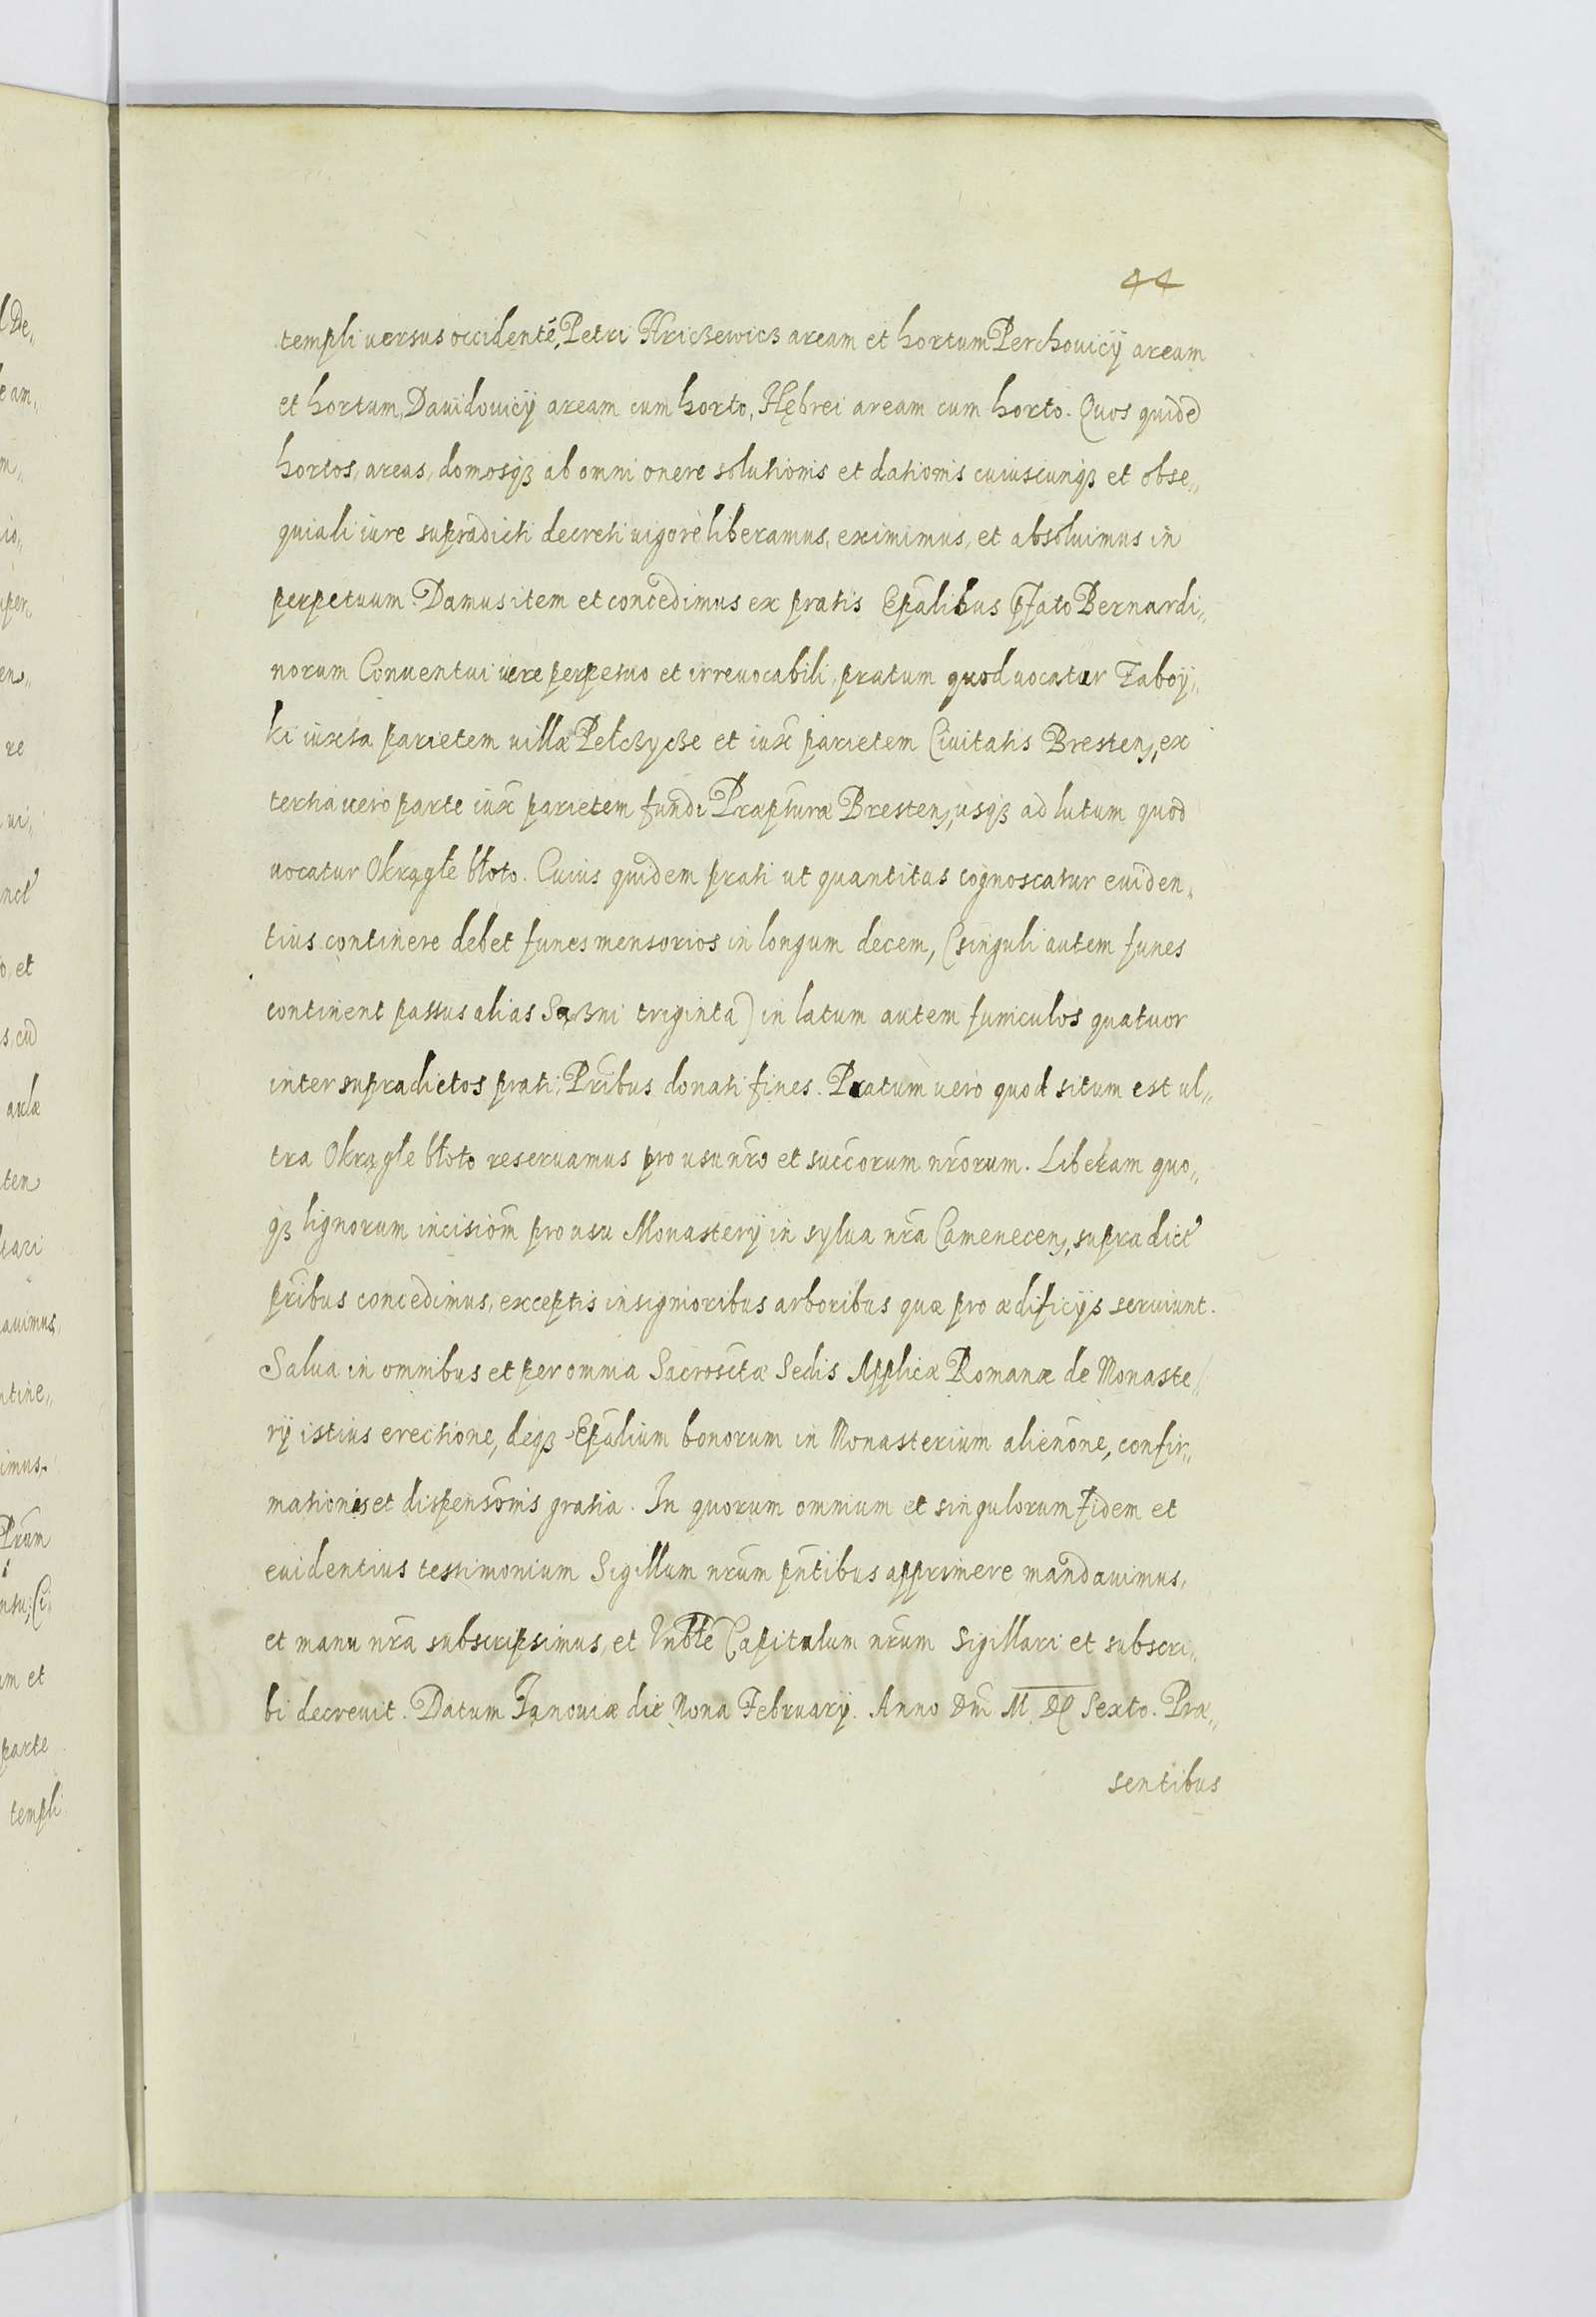 44
templi versus occidentē, Petri Hriczewicz aream et hortum Perchouicÿ aream
et hortum, Dauidouicÿ aream cum horto, Hębrei aream cum horto. Quos quidē
hortos, areas, domosqȝ ab omni onere solutionis et dationis cuiuscunqȝ et obse„
quiali iure supradicti decreti uigore liberamus, eximimus, et absoluimus in
perpetuum. Damus item et concedimus ex pratis Ep̄alibus p̄fato Bernardi„
norum Conuentui iure perpetuo et irreuocabili, pratum quod uocatur Taboÿ„
ki iuxta parietem uillæ Pełczycze et iux̄ parietem Ciuitatis Bresten, ex
tertia vero parte iux̄ parietem fundi Præp̄turæ Bresten, usqȝ ad lutum quod
uocatur Okrągłe błoto. Cuius quidem prati ut quantitas cognoscatur euiden„
tius continere debet funes mensorios in longum decem, (singuli autem funes
continent passus alias Sążni triginta) in latum autem funiculos quatuor
inter supradictos prati, Pr̄ibus donati fines. Pratum vero quod situm est ul„
tra Okrągłe błoto reseruamus pro usu nr̄o et succorum nr̄orum. Liberam quo„
qȝ lignorum incisiōm pro usu Monasterÿ in sylua nr̄a Camenecen, supradict
pr̄ibus concedimus, exceptis insignioribus arboribus quæ pro ædificÿs seruiunt.
Salua in omnibus et per omnia Sacrosctæ Sedis Applicæ Romanæ de Monaste„
rÿ istius erectione, deqȝ Ep̄alium bonorum in Monasterium alienōne, confir„
mationis et dispensōnis gratia. In quorum omnium et singulorum fidem et
euidentius testimonium Sigillum nr̄um pn̄tibus apprimere mandauimus,
et manu nr̄a subscripsimus, et Vn̄ble Capitulum nr̄um Sigillari et subscri„
bi decreuit. Datum Janouiæ die Nona Februarÿ. Anno Dnī M. DC Sexto. Præ„
sentibus